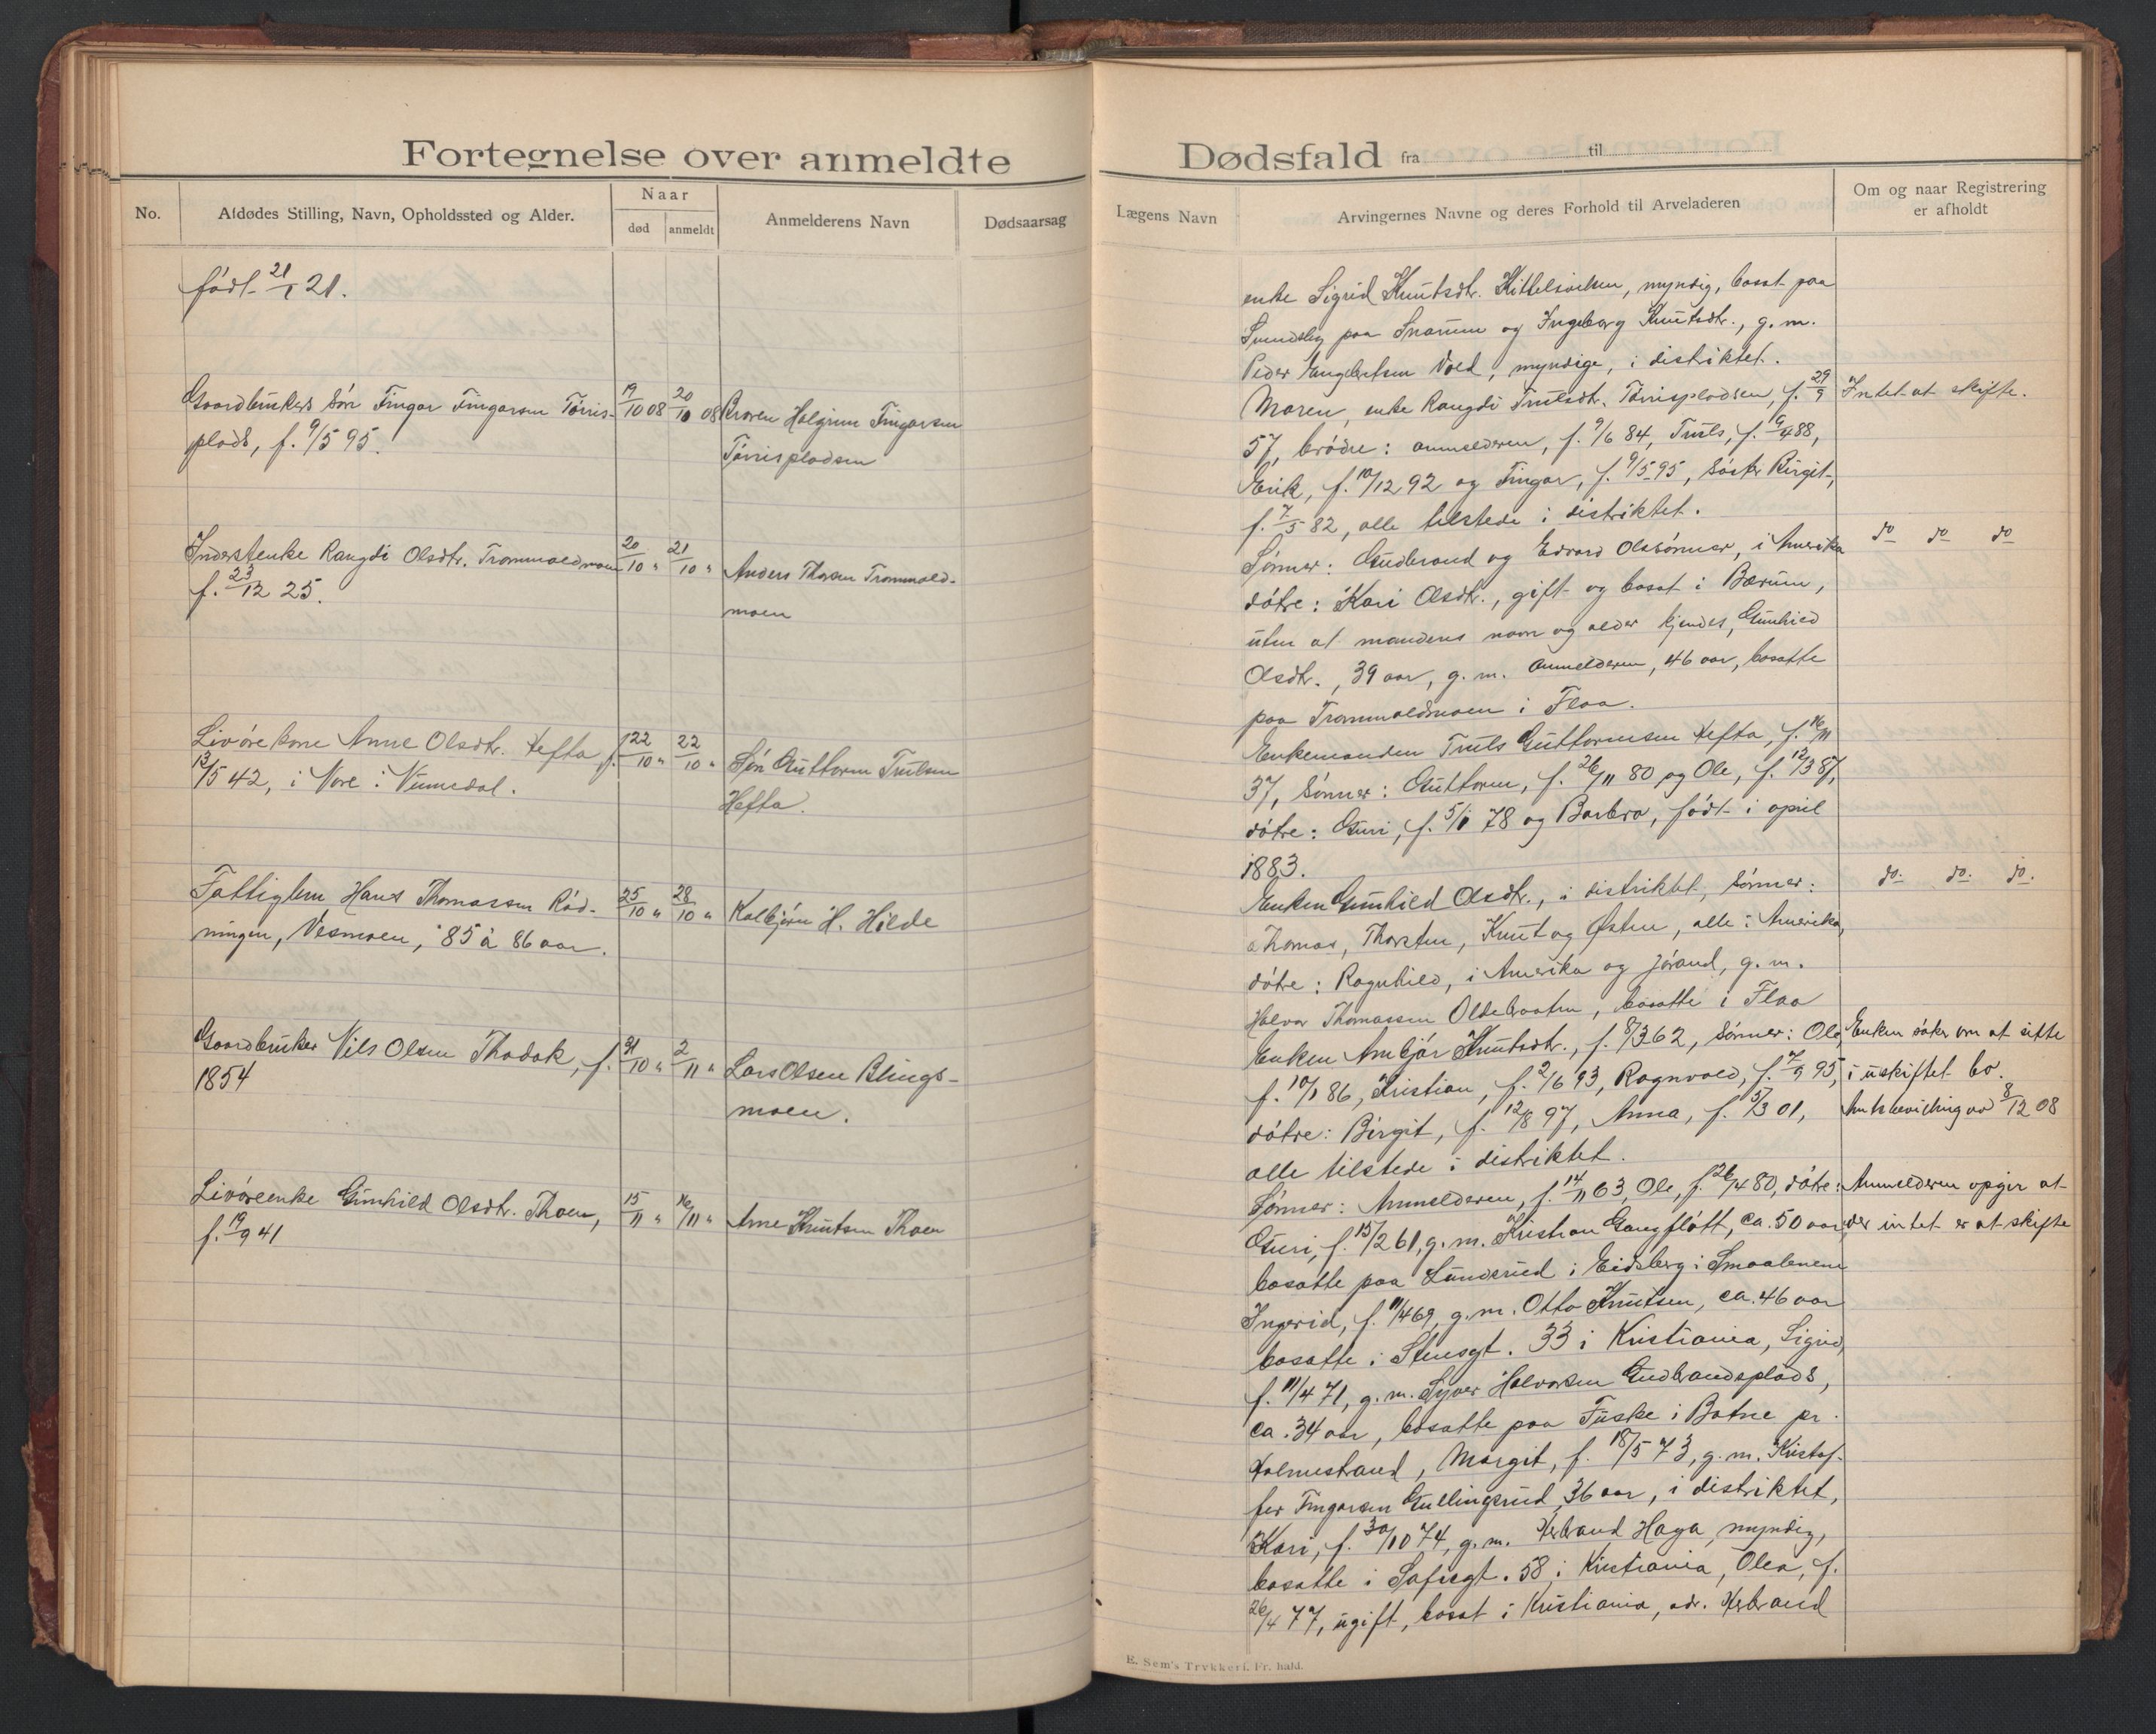 Fortegnelse over anmeldte
No.
Afdødes Stilling, Navn, Opholdssted og Alder.
Naar
død
anmeldt
Anmelderens Navn
Dødsaarsag
født 21/1 21.
Gaardbrukers søn Fingar Fingarsen Tørris-
plads, f. 9/5 95.
19/10 08
20/10 08
Broren Halgrim Fingarsen
Tørrispladsen
Inderstenke Rangdi Olsdtr. Trommaldmoen
f. 23/12 25.
20/10 "
21/10 "
Anders Thorsen Trommald-
moen
Livørekone Anne Olsdtr. Hefta, f.
13/5 42, i Nore i Numedal.
22/10 "
22/10 "
Søn Guttorm Trulsen
Hefta.
Fattiglem Hans Thomassen Rød-
ningen, Vesmoen, 85 à 86 aar.
25/10 "
28/10 "
Kolbjørn H. Hilde
Gaardbruker Nils Olsen Thodak, f.
1854
31/10 "
2/11 "
Lars Olsen Blings-
moen.
Livøreenke Gunhild Olsdtr. Thoen,
f. 19/9 41
15/11 "
16/11 "
Arne Knutsen Thoen
Dødsfald fra til
Lægens Navn
Arvingernes Navne og deres Forhold til Arveladeren
Om og naar Registrering
er afholdt
enke Sigrid Knutsdtr. Kittelsviken, myndig, bosat paa
paa Snarum og Ingeborg Knutsdtr., g. m.
Peder Engebretsen Vold, myndige, i distriktet.
Moren, enke Rangdi Trulsdtr. Tørrispladsen, f. 29/9
57, brødre: anmelderen, f. 9/6 84, Truls, f. 19/4 88,
Erik, f. 10/12 92 og Fingar, f. 9/5 95, søster Birgit,
f. 7/5 82, alle tilstede i distriktet.
Intet at skifte.
Sønner: Gudbrand og Edvard Olssønner, i Amerika
døtre: Kari Olsdtr., gift og bosat i Bærum,
uten at mandens navn og alder kjendes, Gunhild
Olsdtr., 39 aar, g. m. anmelderen, 46 aar, bosatte
paa Trommaldmoen i Flaa.
do do do
Enkemanden Truls Guttormsen Hefta, f. 16/11
37, sønner: Guttorm, f. 26/11 80 og Ole, f. 12/3 87,
døtre: Guri, f. 5/1 78 og Barbra, født i april
1883.
Enken Gunhild Olsdtr., i distriktet, sønner:
Thomas, Thorsten, Knut og Østen, alle i Amerika,
døtre: Ragnhild, i Amerika og Jørand, g. m.
Halvor Thomassen Oldebraaten, bosatte i Flaa
do. do. do.
Enken Ambjør Knutsdtr., f. 8/3 62, sønner: Ole,
f. 10/1 86, Kristian, f. 2/6 93, Ragnvald, f. 7/9 95,
døtre: Birgit, f. 12/8 97, Anna, f. 5/3 01,
alle tilstede i distriktet.
Enken søker om at sitte
i uskiftet bo.
Amtsbevilling av 8/12 08
Sønner: Anmelderen, f. 14/11 63, Ole, f. 26/4 80, døtre:
Guri, f. 15/2 61, g. m. Kristian Gangfløtt, ca. 50 aar,
bosatte paa Lundsrud i Eidsberg i Smaalenene
Ingerid, f. 11/4 69, g. m. Otto Knutsen, ca. 46 aar
bosatte i Stensgt. 33 i Kristiania, Sigrid,
f. 11/4 71, g. m. Syver Halvorsen Gudbrandsplads,
ca. 34 aar, bosatte paa Fuske i Botne pr.
Holmestrand, Margit, f. 18/5 73, g. m. Kristof-
fer Fingarsen Gullingsrud 36 aar, i distriktet,
Kari, f. 30/10 74, g. m. Herbrand Haga, myndig,
bosatte i Sofiegt. 58 i Kristiania, Olea, f.
26/4 77, ugift, bosat i Kristiania, adr. Herbrand
Anmelderen opgir at
der intet er at skifte
E. Sem's Trykkeri. Fr. hald.